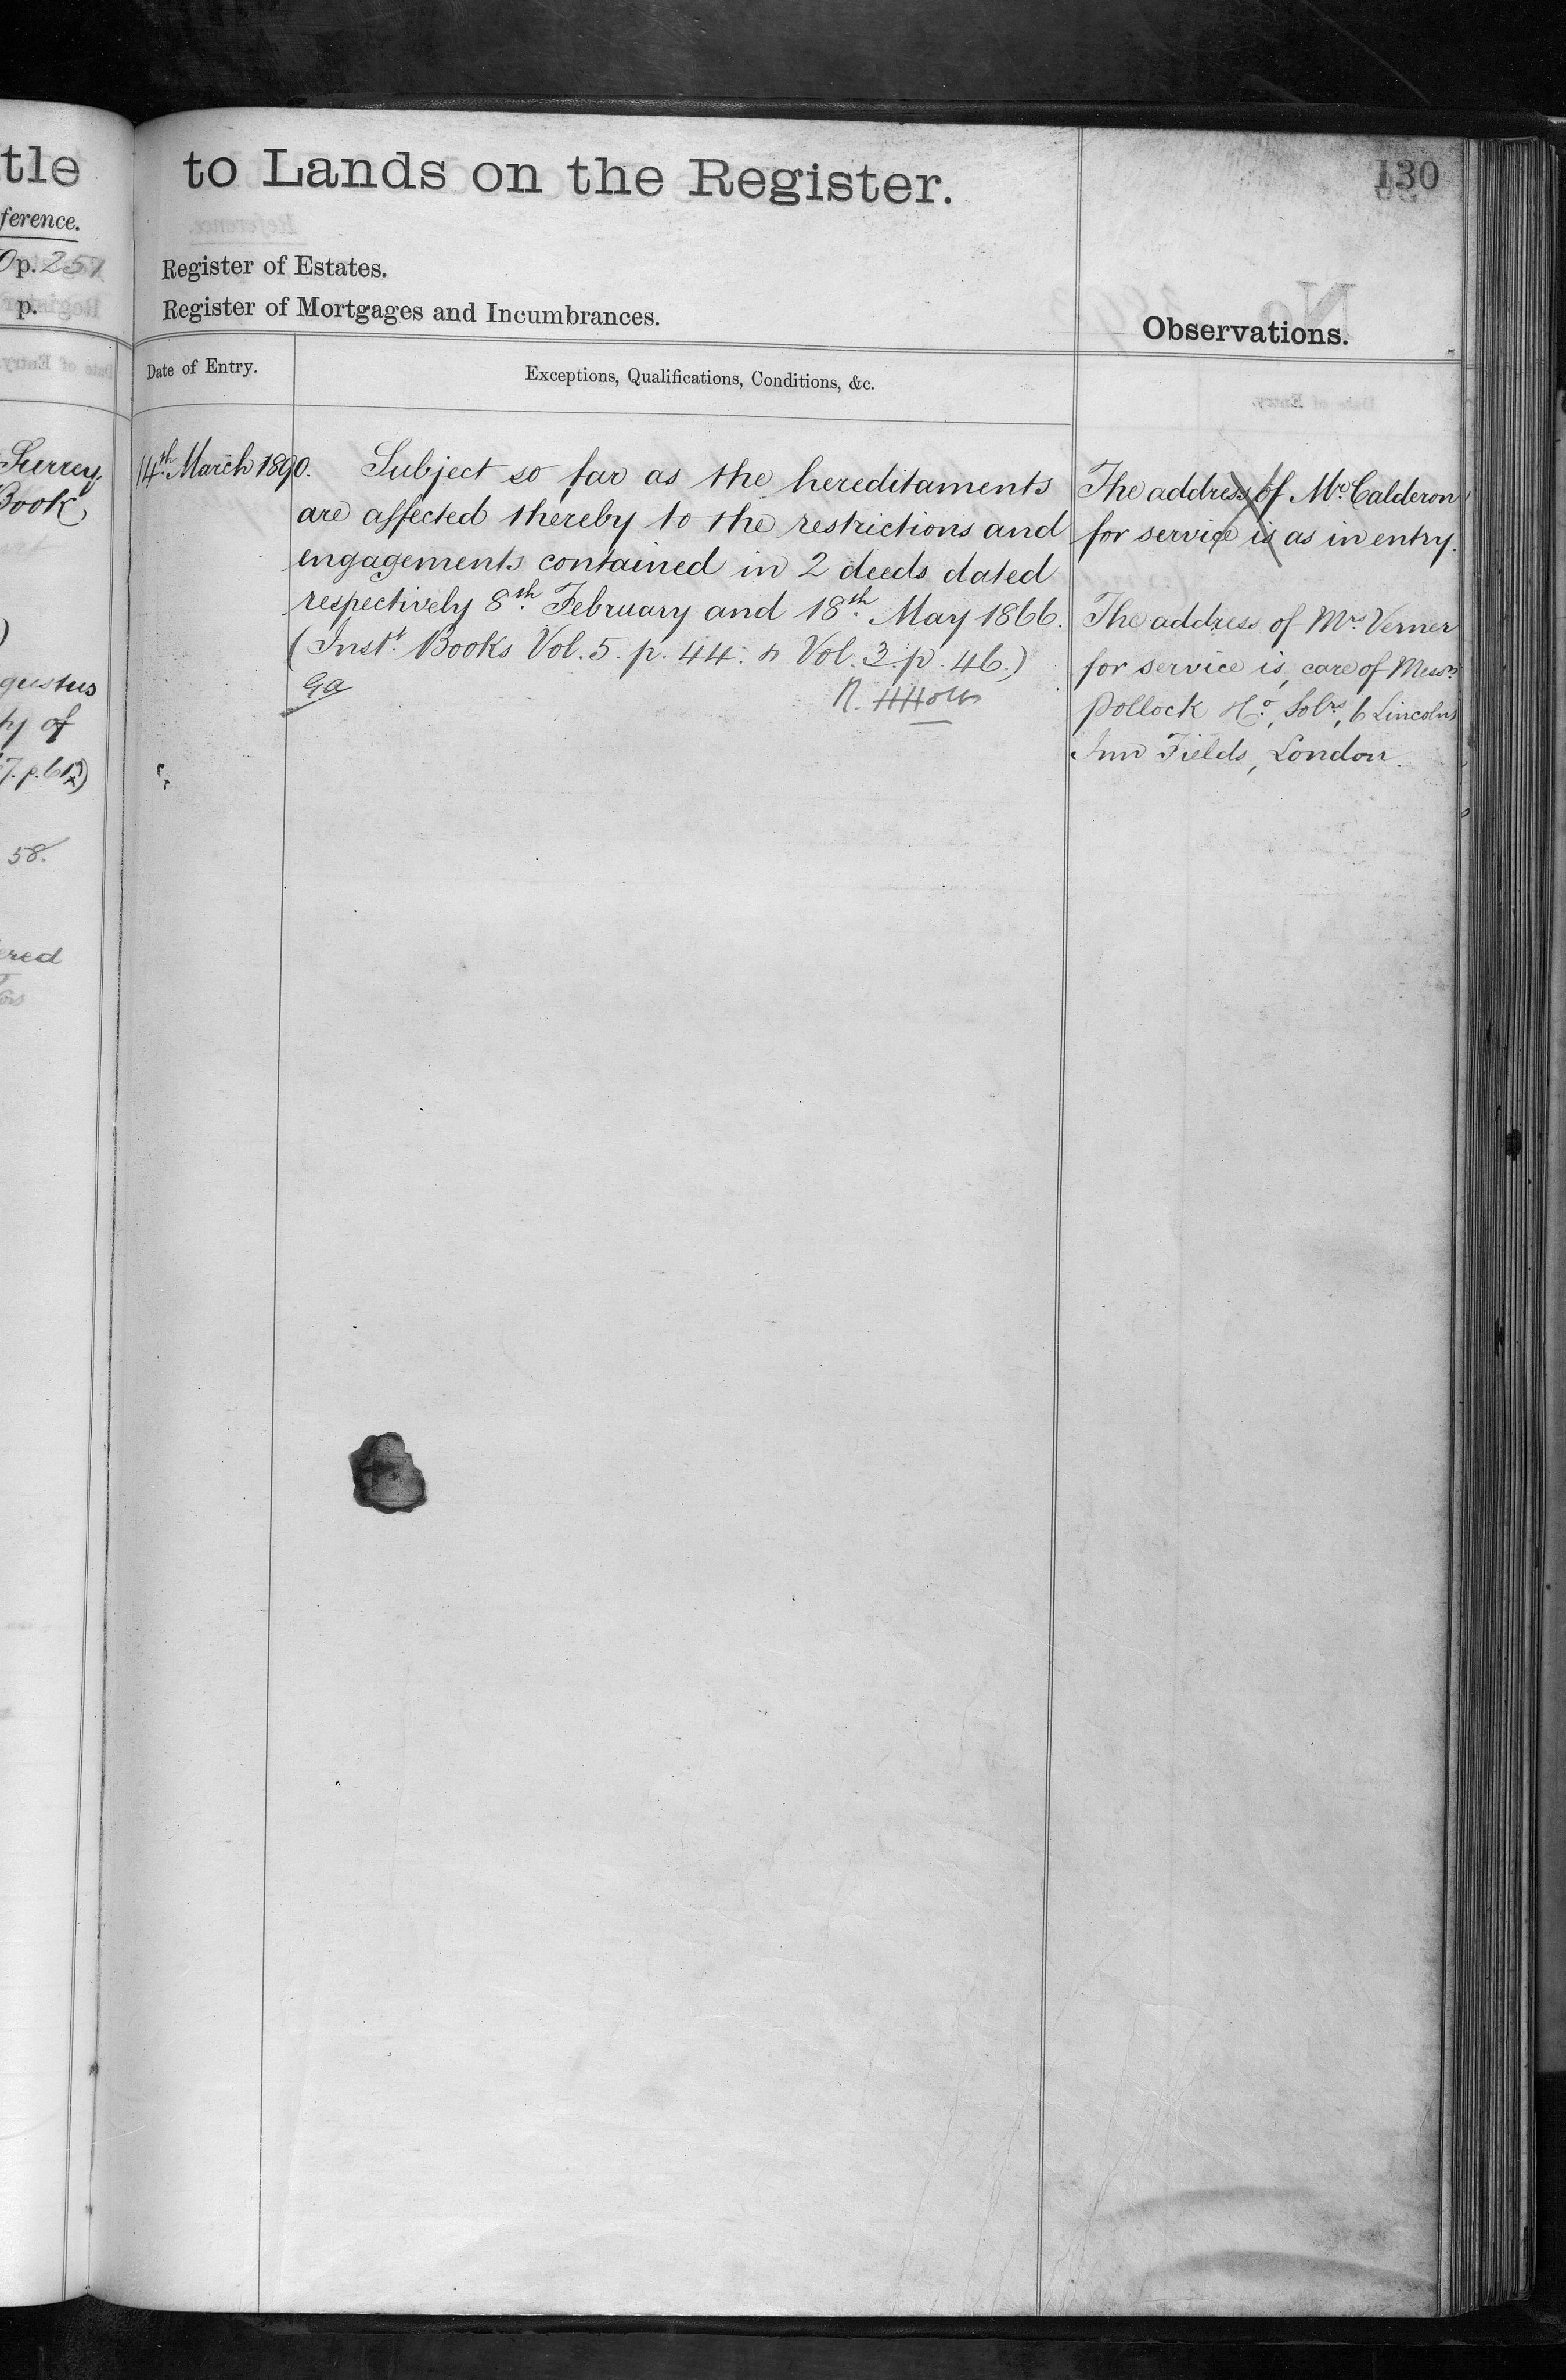 tle
ference.
p. 257
p.
Surrey,
Book,
gustus
ty of
58.
ered
to Lands on the Register.
130
Register of Estates.
Register of Mortgages and Incumbrances.
Observations.
Date of Entry.
Exceptions, Qualifications, Conditions, &c.
14th March 1890.
Subject so far as the hereditaments
are affected thereby to the restrictions and
engagements contained in 2 deeds dated
respectively 8th February and 18th May 1866.
(Inst. Books Vol. 5. p. 44. & Vol. 3. p. 46.)
The address of Mr. Calderon
for service is as in entry.
The address of Mrs. Verner
for service is, care of Messrs.
Pollock & Co., Solrs., 6 Lincolns
Inn Fields, London.